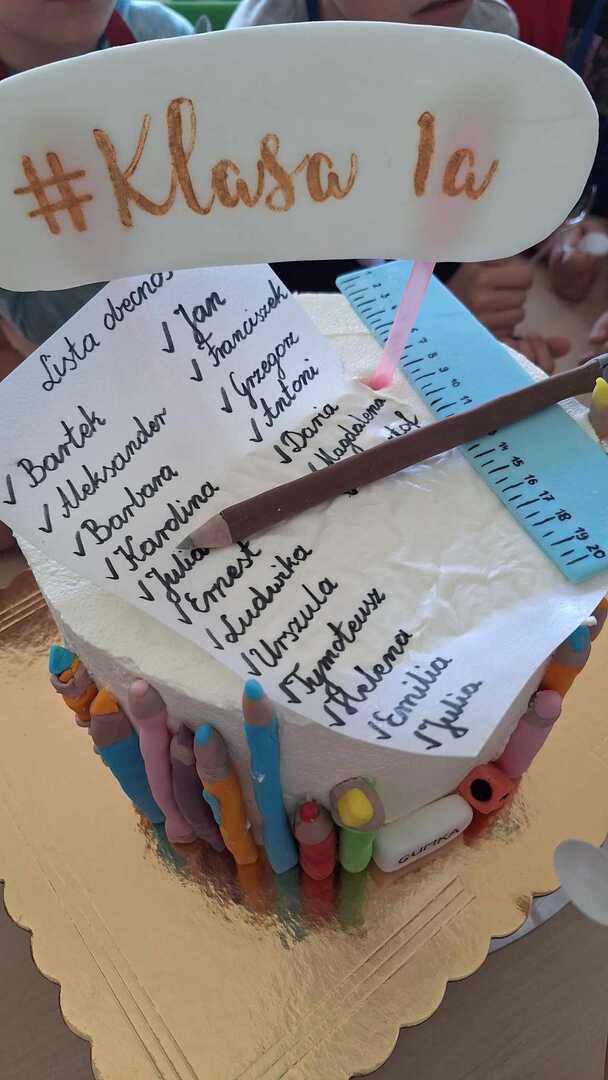 #Klasa 1a
Lista obecnoś
✓ Bartek
✓ Aleksander
✓ Barbara
✓ Karolina
✓ Julia
✓ Ernest
✓ Ludwika
✓ Urszula
✓ Tymoteusz
✓ Helena
✓ Emilia
✓ Julia
✓ Jan
✓ Franciszek
✓ Grzegorz
✓ Antoni
✓ Daria
✓ Magdalena
2 3 6 7 8 9 10 11 14 15 16 17 18 19 20
GUMKA